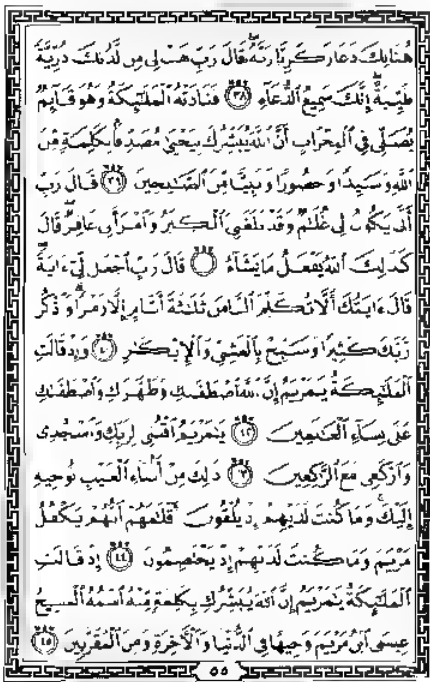 هُنَالِكَ دَعَا زَكَرِيَّا رَبَّهُۥ قَالَ رَبِّ هَبْ لِى مِن لَّدُنكَ ذُرِّيَّةً
طَيِّبَةً إِنَّكَ سَمِيعُ ٱلدُّعَآءِ ٣٨ فَنَادَتْهُ ٱلْمَلَٰٓئِكَةُ وَهُوَ قَآئِمٌ
يُصَلِّى فِى ٱلْمِحْرَابِ أَنَّ ٱللَّهَ يُبَشِّرُكَ بِيَحْيَىٰ مُصَدِّقًۢا بِكَلِمَةٍ مِّنَ
ٱللَّهِ وَسَيِّدًا وَحَصُورًا وَنَبِيًّا مِّنَ ٱلصَّٰلِحِينَ ٣٩ قَالَ رَبِّ
أَنَّىٰ يَكُونُ لِى غُلَٰمٌ وَقَدْ بَلَغَنِىَ ٱلْكِبَرُ وَٱمْرَأَتِى عَاقِرٌ قَالَ
كَذَٰلِكَ ٱللَّهُ يَفْعَلُ مَا يَشَآءُ قَالَ رَبِّ ٱجْعَل لِّىٓ ءَايَةً
قَالَ ءَايَتُكَ أَلَّا تُكَلِّمَ ٱلنَّاسَ ثَلَٰثَةَ أَيَّامٍ إِلَّا رَمْزًا وَٱذْكُر
رَّبَّكَ كَثِيرًا وَسَبِّحْ بِٱلْعَشِىِّ وَٱلْإِبْكَٰرِ وَإِذْ قَالَتِ
ٱلْمَلَٰٓئِكَةُ يَٰمَرْيَمُ إِنَّ ٱللَّهَ ٱصْطَفَىٰكِ وَطَهَّرَكِ وَٱصْطَفَىٰكِ
عَلَىٰ نِسَآءِ ٱلْعَٰلَمِينَ ٤٢ يَٰمَرْيَمُ ٱقْنُتِى لِرَبِّكِ وَٱسْجُدِى
وَٱرْكَعِى مَعَ ٱلرَّٰكِعِينَ ذَٰلِكَ مِنْ أَنۢبَآءِ ٱلْغَيْبِ نُوحِيهِ
إِلَيْكَ وَمَا كُنتَ لَدَيْهِمْ إِذْ يُلْقُونَ أَقْلَٰمَهُمْ أَيُّهُمْ يَكْفُلُ
مَرْيَمَ وَمَا كُنتَ لَدَيْهِمْ إِذْ يَخْتَصِمُونَ ٤٤ إِذْ قَالَتِ
ٱلْمَلَٰٓئِكَةُ يَٰمَرْيَمُ إِنَّ ٱللَّهَ يُبَشِّرُكِ بِكَلِمَةٍ مِّنْهُ ٱسْمُهُ ٱلْمَسِيحُ
عِيسَى ٱبْنُ مَرْيَمَ وَجِيهًا فِى ٱلدُّنْيَا وَٱلْءَاخِرَةِ وَمِنَ ٱلْمُقَرَّبِينَ ٤٥
٥٥